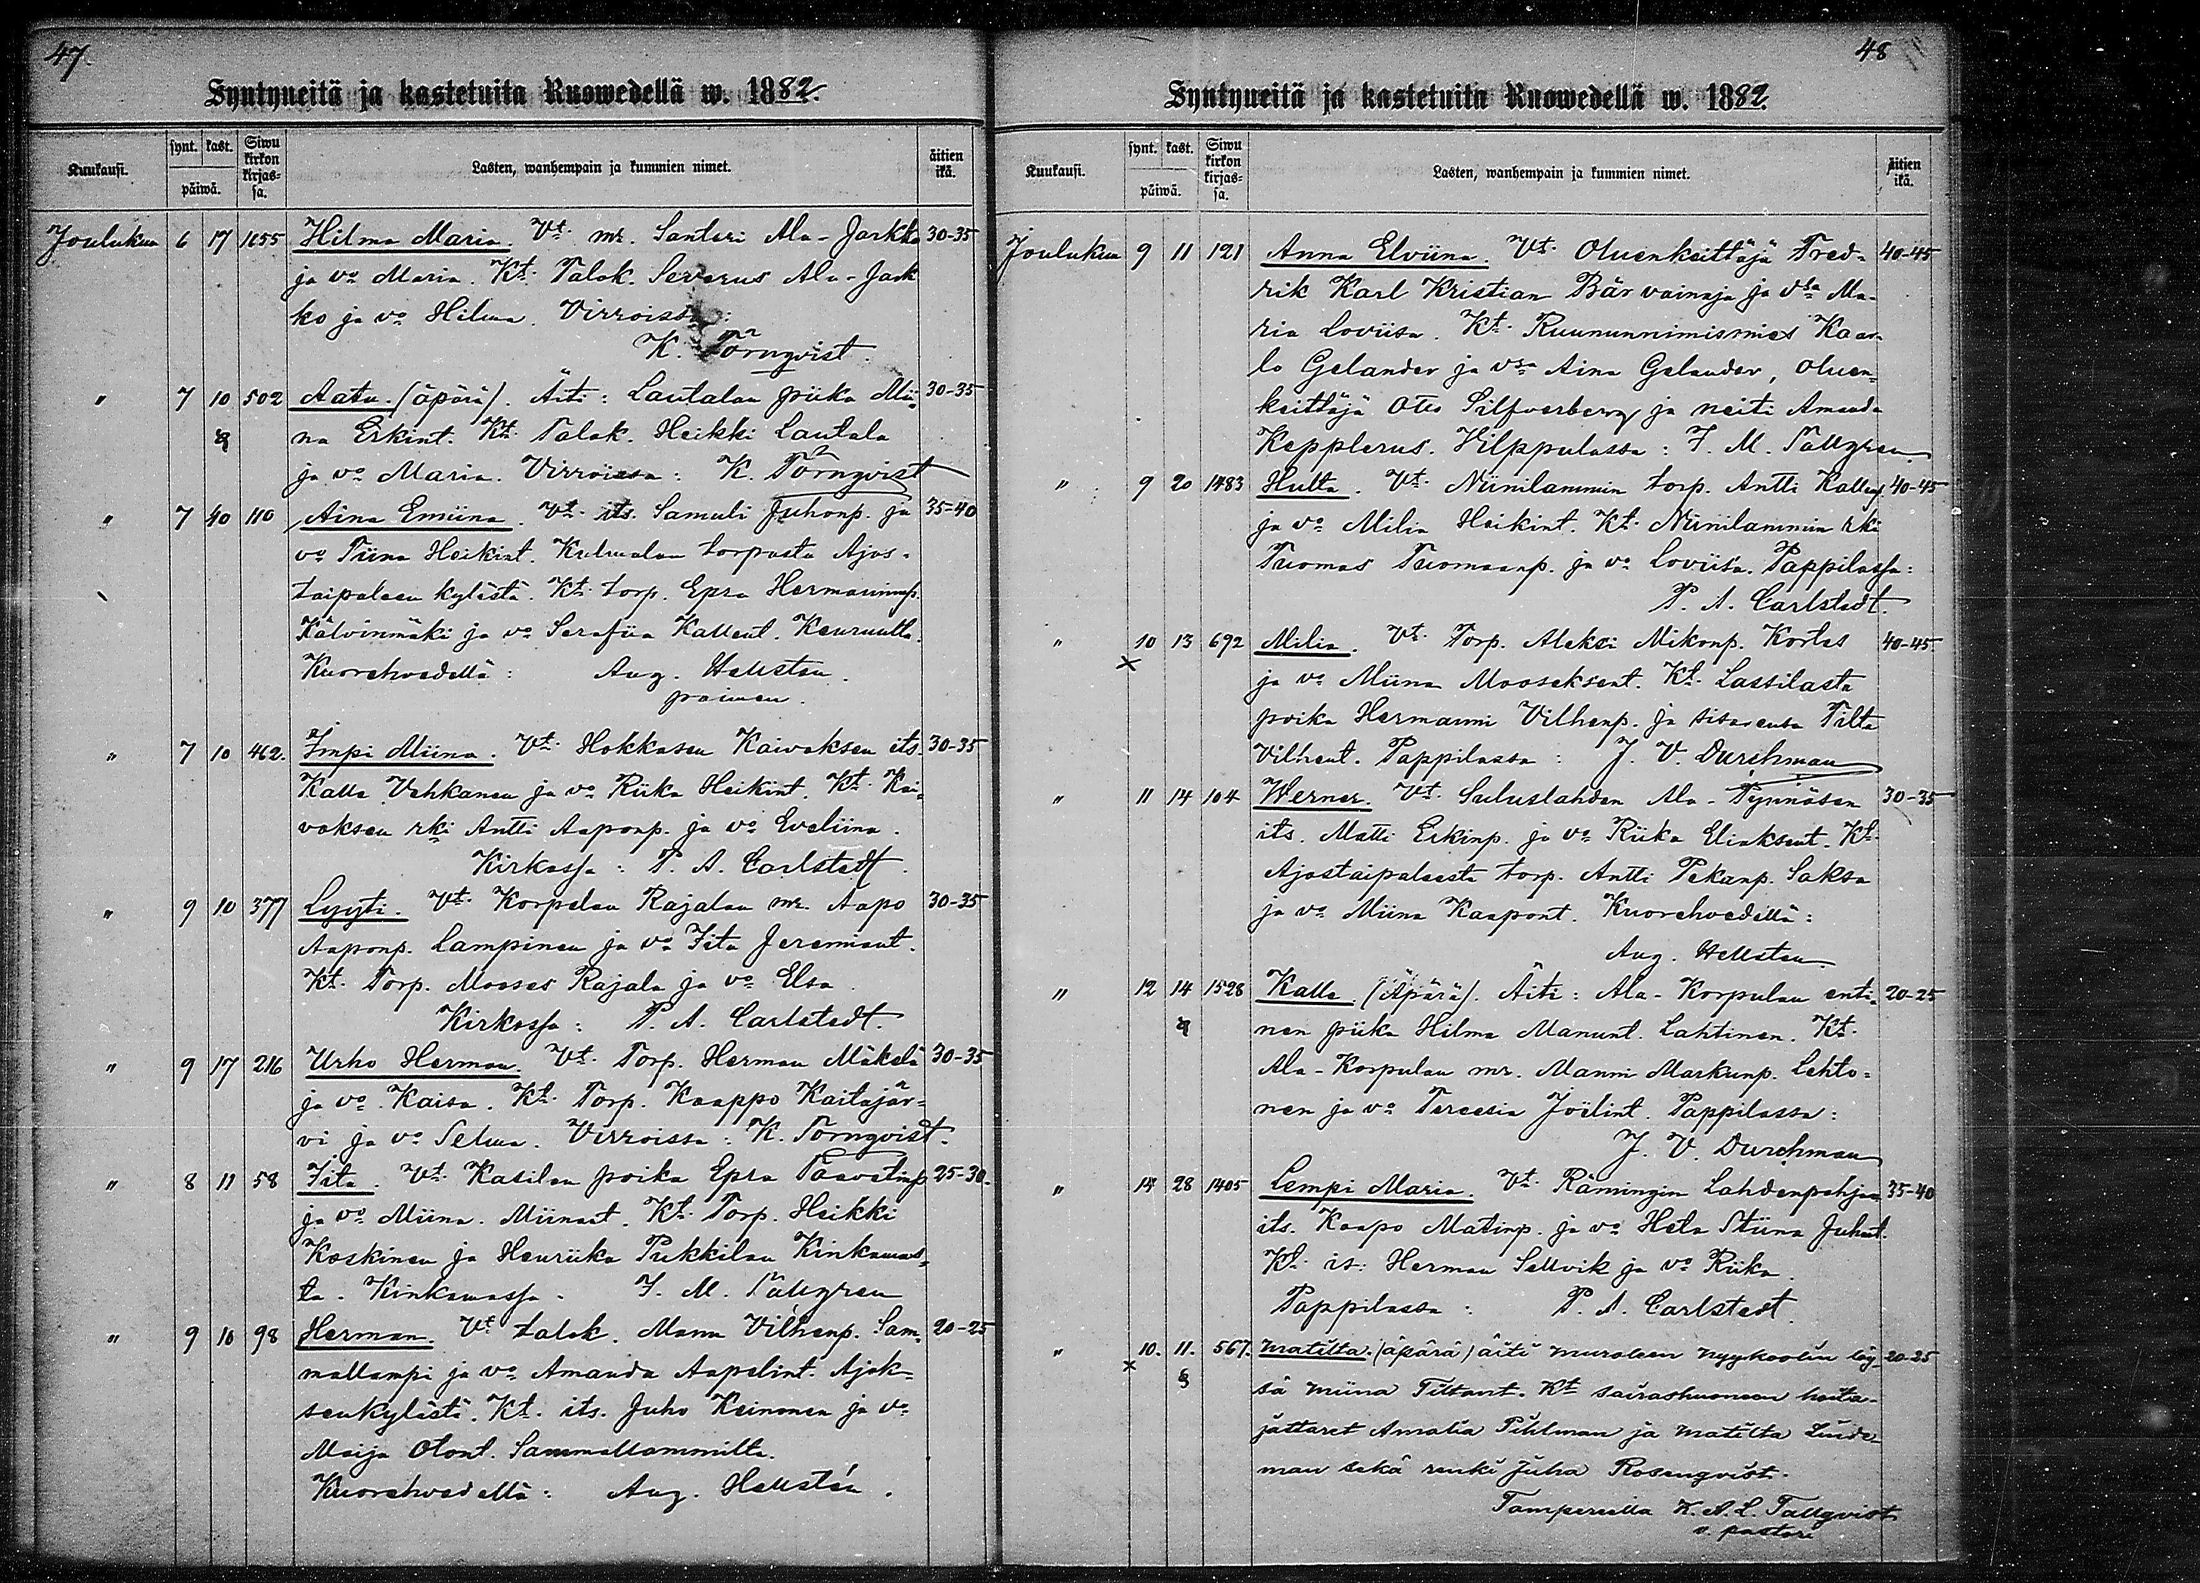 47.
Syntyneitä ja kastetuita Ruowedellä w. 1882.
Kuukausi. synt. kast. päiwä. Siwu kirkon kirjas-sa. Lasten, wanhempain ja kummien nimet. äitien ikä.
Joulukuu 6 17 1655 Hilma Maria. Vt. mr. Santeri Ala-Jarkko 30-35
ja vo Maria. Kt. Talok. Severus Ala-Jark
ko ja vo Hilma. Virroissa:
K. Törnqvist.
" 7 10 502 Aatu. (äpärä). Äiti: Lautalan piika Mii- 30-35
na Erkint. Kt. Talok. Heikki Lautala
ja vo Maria. Virroissa: K. Törnqvist
" 7 10 110 Aina Emiina. Vt. its. Samuli Juhonp. ja 35-40
vo Tiina Heikint. Kulmalan torpasta Ajos-
taipaleen kylästä. Kt. torp. Epra Hermanninp.
Kälvinmäki ja vo Serafiia Kallent. Keuruulla.
Kuorehvedellä: Aug. Hellsten.
paimen.
" 7 10 462. Impi Miina. Vt. Hokkasen Kaivoksen its. 30-35
Kalle Vehkanen ja vo Riika Heikint. Kt. Kai-
voksen rki Antti Aaponp. ja vo Eveliina.
Kirkossa: P. A. Carlstedt.
" 9 10 377 Lyyti. Vt. Korpelan Rajalan mr. Aapo 30-35
Aaponp. Lampinen ja vo Fita Jeremiant.
Kt. Torp. Mooses Rajala ja vo Elsa.
Kirkossa: P. A. Carlstedt.
" 9 17 216 Urho Herman. Vt. Torp. Herman Mäkelä 30-35
ja vo Kaisa. Kt. Torp. Kaappo Kaitajär-
vi ja vo Selma. Virroissa: K. Törnqvist.
" 8 11 58 Fita. Vt. Kasilan poika Epra Paavelinp. 25-30.
ja vo Miina. Miinant. Kt. Torp. Heikki
Koskinen ja Henriika Pukkilan Kinkamas-
ta. Kinkamassa. F. M. Tallgren
" 9 10 98 Herman. Vt. talok. Manu Vilhenp. Sam- 20-25
mallampi ja vo Amanda Aapelint. Ajok-
senkylästä. Kt. its. Juho Keinonen ja vo
Maija Otont. Sammallammilta.
Kuorehvedellä: Aug. Hellstén.
48
Syntyneitä ja kastetuita Ruowedellä w. 1882.
Kuukausi. synt. kast. päiwä. Siwu kirkon kirjas-sa. Lasten, wanhempain ja kummien nimet. äitien ikä.
Joulukuu 9 11 121 Anna Elviina. Vt. Oluenkeittäjä Fred- 40-45
rik Karl Kristian Bär vainaja ja vsa Ma-
ria Loviisa. Kt. Ruununnimismies Kaar-
lo Gelander ja vsa Aina Gelander, oluen-
keittäjä Otto Silfverberg ja neiti Amanda
Kepplerus. Vilppulassa: F. M. Tallgren.
" 9 20 1483 Hulta. Vt. Niinilammin torp. Antti Kallenp. 40-45
ja vo Milia Heikint. Kt. Niinilammin rki
Tuomas Tuomaanp. ja vo Loviisa. Pappilassa:
P. A. Carlstedt.
" 10 13 692 Milia. Vt. Torp. Aleksi Mikonp. Kortes 40-45
×
ja vo Miina Mooseksent. Kt. Lassilasta
poika Hermanni Vilhenp. ja sisarensa Tilta
Vilhent. Pappilassa: J. V. Durchman
" 11 14 104 Werner. Vt. Suluslahden Ala-Pynnösen 30-35
its. Matti Erkinp. ja vo Riika Eliaksent. Kt.
Ajostaipaleesta torp. Antti Pekanp. Saksa
ja vo Miina Kaapont. Kuorehvedellä:
Aug. Hellsten.
" 12 14 1528 Kalle. (Äpärä). Äiti: Ala-Korpulan enti- 20-25
nen piika Hilma Manunt. Lahtinen. Kt.
Ala-Korpulan mr. Manni Markunp. Lehto-
nen ja vo Tereesia Joelint. Pappilassa:
J. V. Durchman
" 14 28 1405 Lempi Maria. Vt. Rämingin Lahdenpohjan 35-40
its. Kaapo Matinp. ja vo Heta Stiina Juhant.
Kt. is: Herman Sellvik ja vo Riika.
Pappilassa: P. A. Carlstedt.
" 10. 11. 567. Matilta. (äpärä) äiti Muroleen 20-25
×
sä Miina Tiltant. Kt. sairashuoneen hoita-
jattaret Amalia Pihlman ja Matilta Linde-
man sekä renki Juha Rosenqvist.
Tampereella K. A. L. Tallqvist
v. pastori